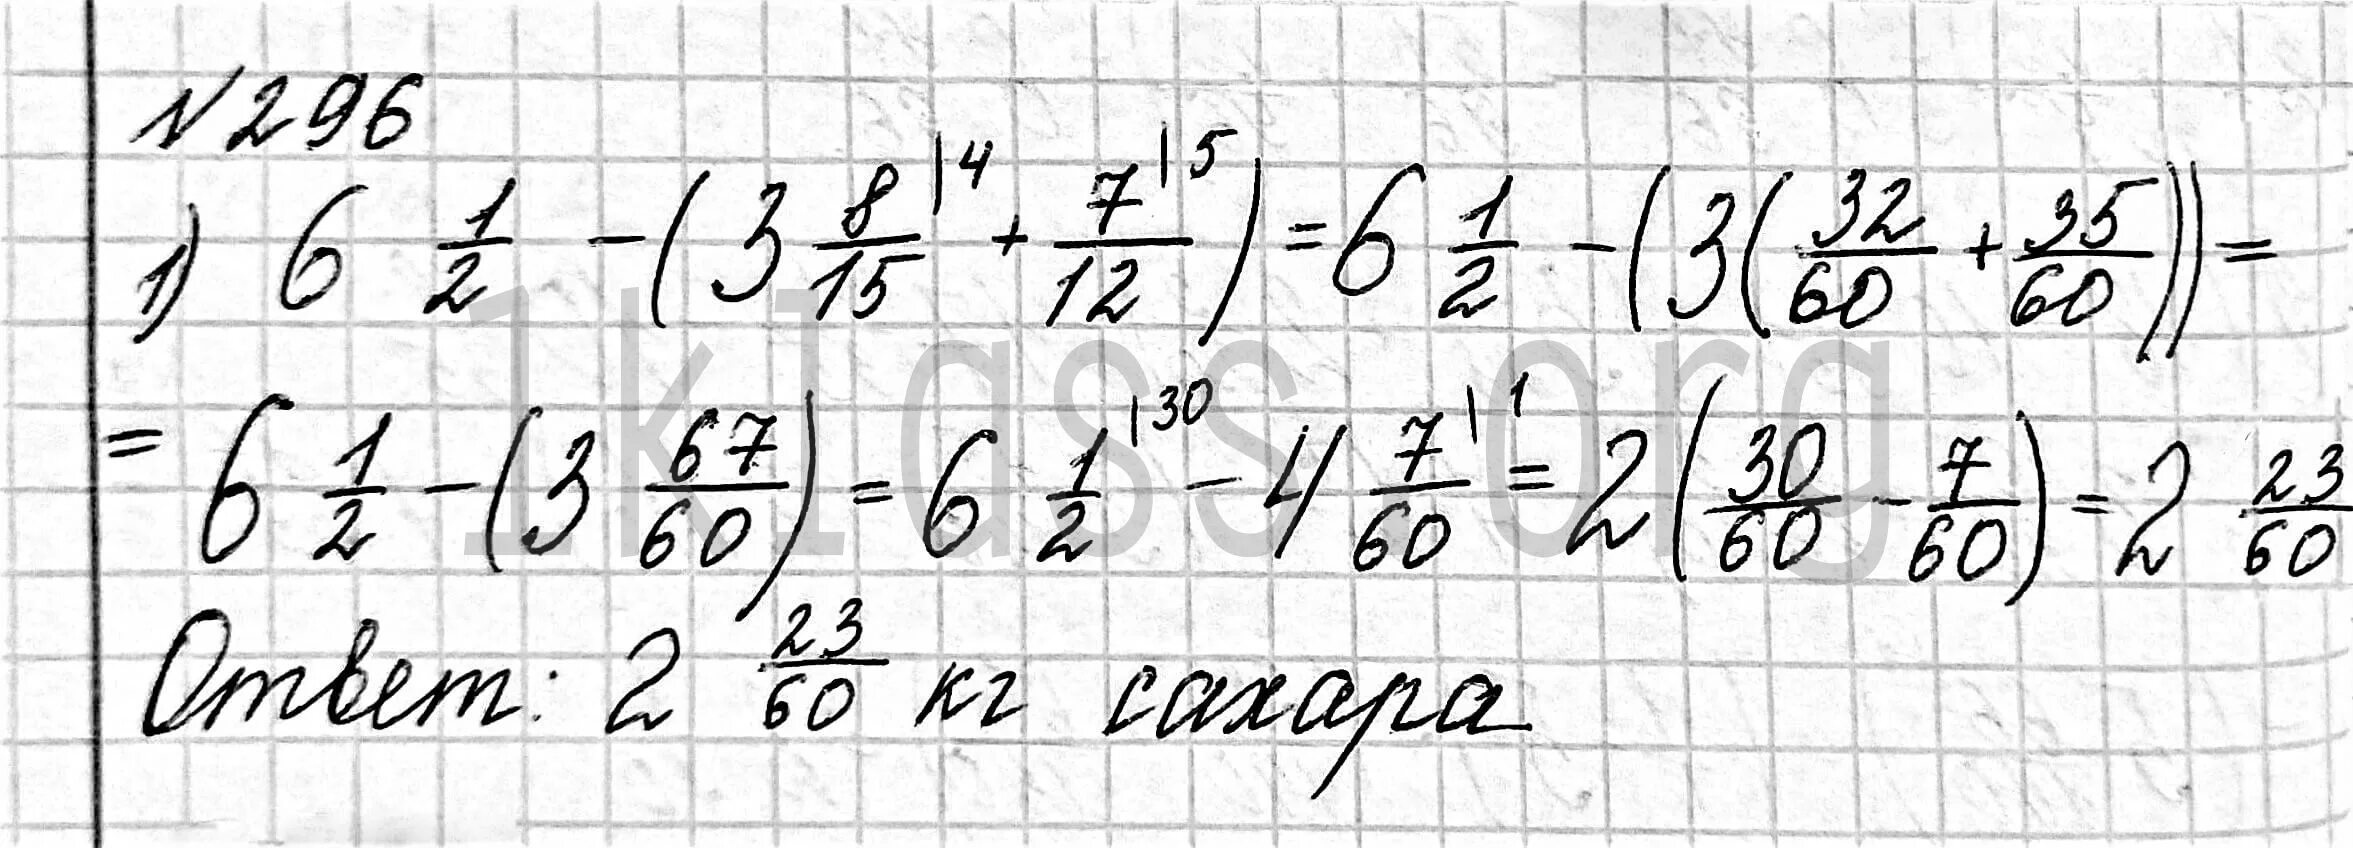 №296
1) 6 1/2 - (3 8/15 |4 + 7/12 |5) = 6 1/2 - (3(32/60 + 35/60)) =
= 6 1/2 - (3 67/60) = 6 1/2 |30 - 4 7/60 |1 = 2(30/60 - 7/60) = 2 23/60
Ответ: 2 23/60 кг сахара
1klass org